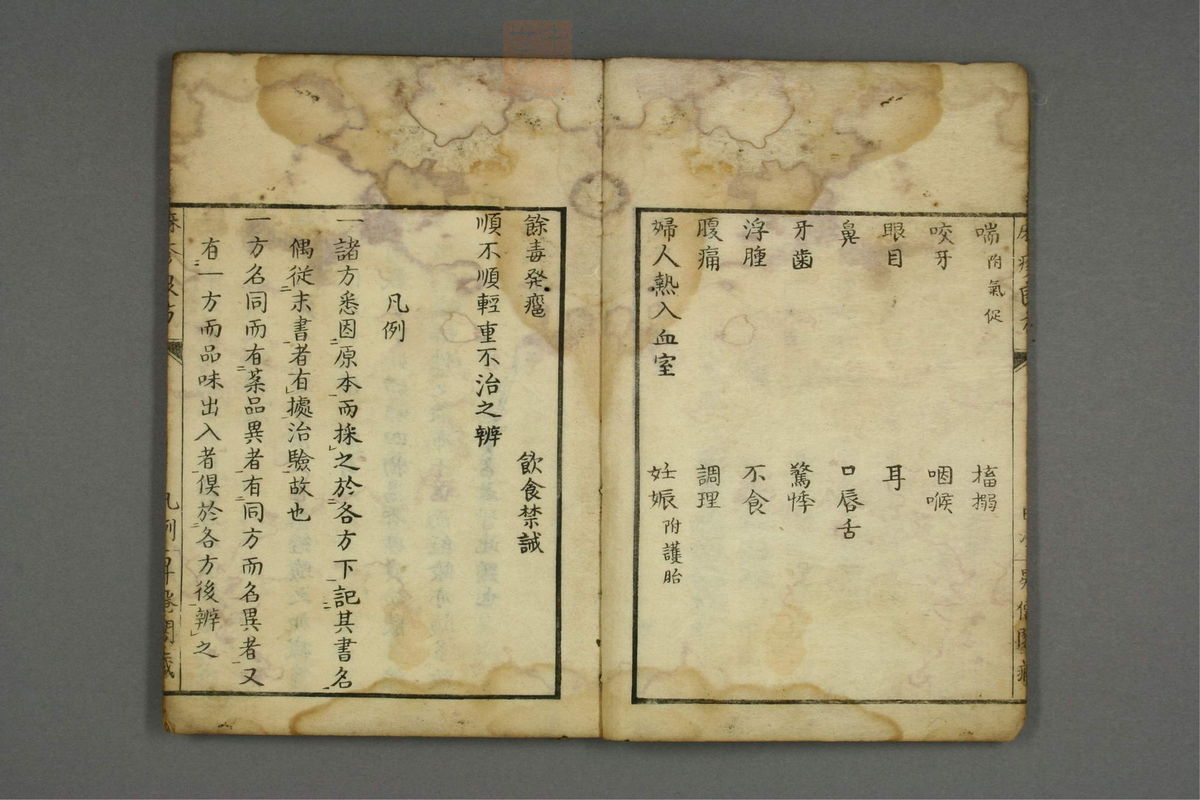 喘附氣促 搐搦
咬牙 咽喉
眼目 耳
鼻 口唇舌
牙齒 驚悸
浮腫 不食
腹痛 調理
婦人熱入血室 妊娠附護胎
餘毒発瘡 飲食禁誡
順不順輕重不治之辨
凡例
一諸方悉因原本而採之於各方下記其書名
偶従末書者有據治驗故也
一方名同而有菜品異者有同方而名異者又
有一方而品味出入者俱於各方後辨之
凡例